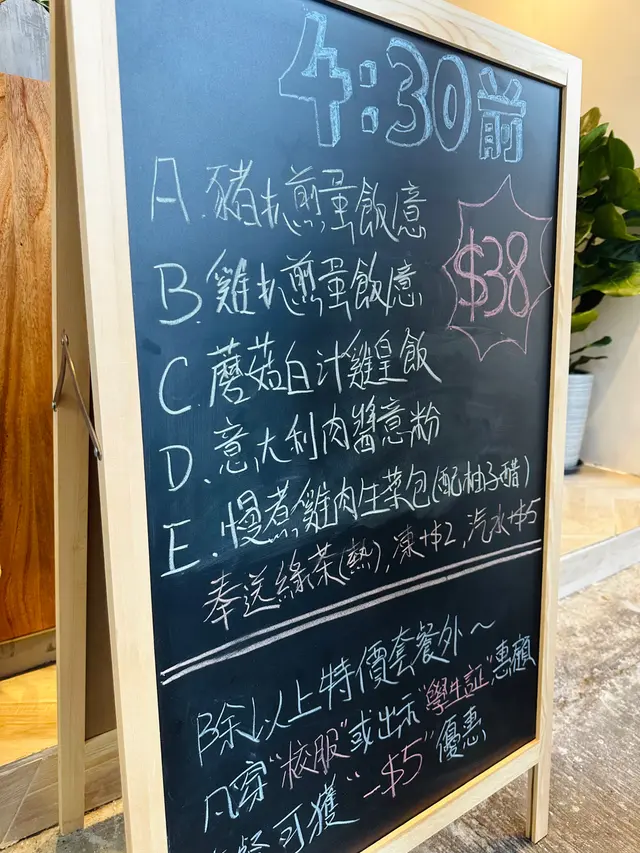 4:30前
A.豬扒煎蛋飯/意
$38
B.雞扒煎蛋飯/意
C.蘑菇白汁雞皇飯
D.意大利肉醬意粉
E.慢煮雞肉生菜包(配柚子醋)
奉送綠茶(熱),凍+$2,汽水+$5
除以上特價套餐外～
凡穿"校服"或出示"學生証"惠顧
套餐可獲"-$5"優惠